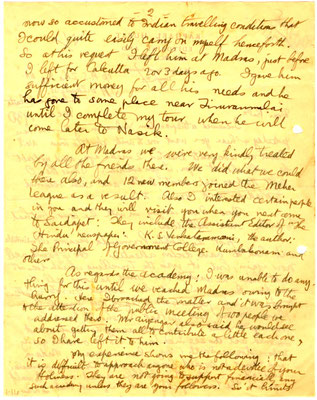 - 2 -
now so accustomed to Indian travelling conditions that
I could quite easily carry on myself henceforth.
So at his request I left him at Madras, just before
I left for Calcutta 2 or 3 days ago. I gave him
sufficient money for all his needs and he
has gone to some place near Tiruvannamalai
until I complete my tour, when he will
come later to Nasik.
At Madras we were very kindly treated
by all the friends there. We did what we could
there also, and 12 new members joined the Meher
league as a result. Also I interested certain people
in you and they will visit you when you next come
to Saidapet. They include the Assistant Editor of the
"Hindu" newspaper. K. S. Venkataramani, the author.
The Principal of Government College, Kumbakonam and
others
As regards the academy, I was unable to do any-
thing for this until we reached Madras owing to the
Here I broached the matter and it was brought
to the attention of the public meeting of 100 people we
addressed there. Mr. also said he would see
about getting them all to contribute a little each one,
so I have left it to him.
My experience shows me the following; that
it is difficult to approach anyone who is not a devotee of your
Holiness. They are not going to support financially any
such academy unless they are your followers. So it limits